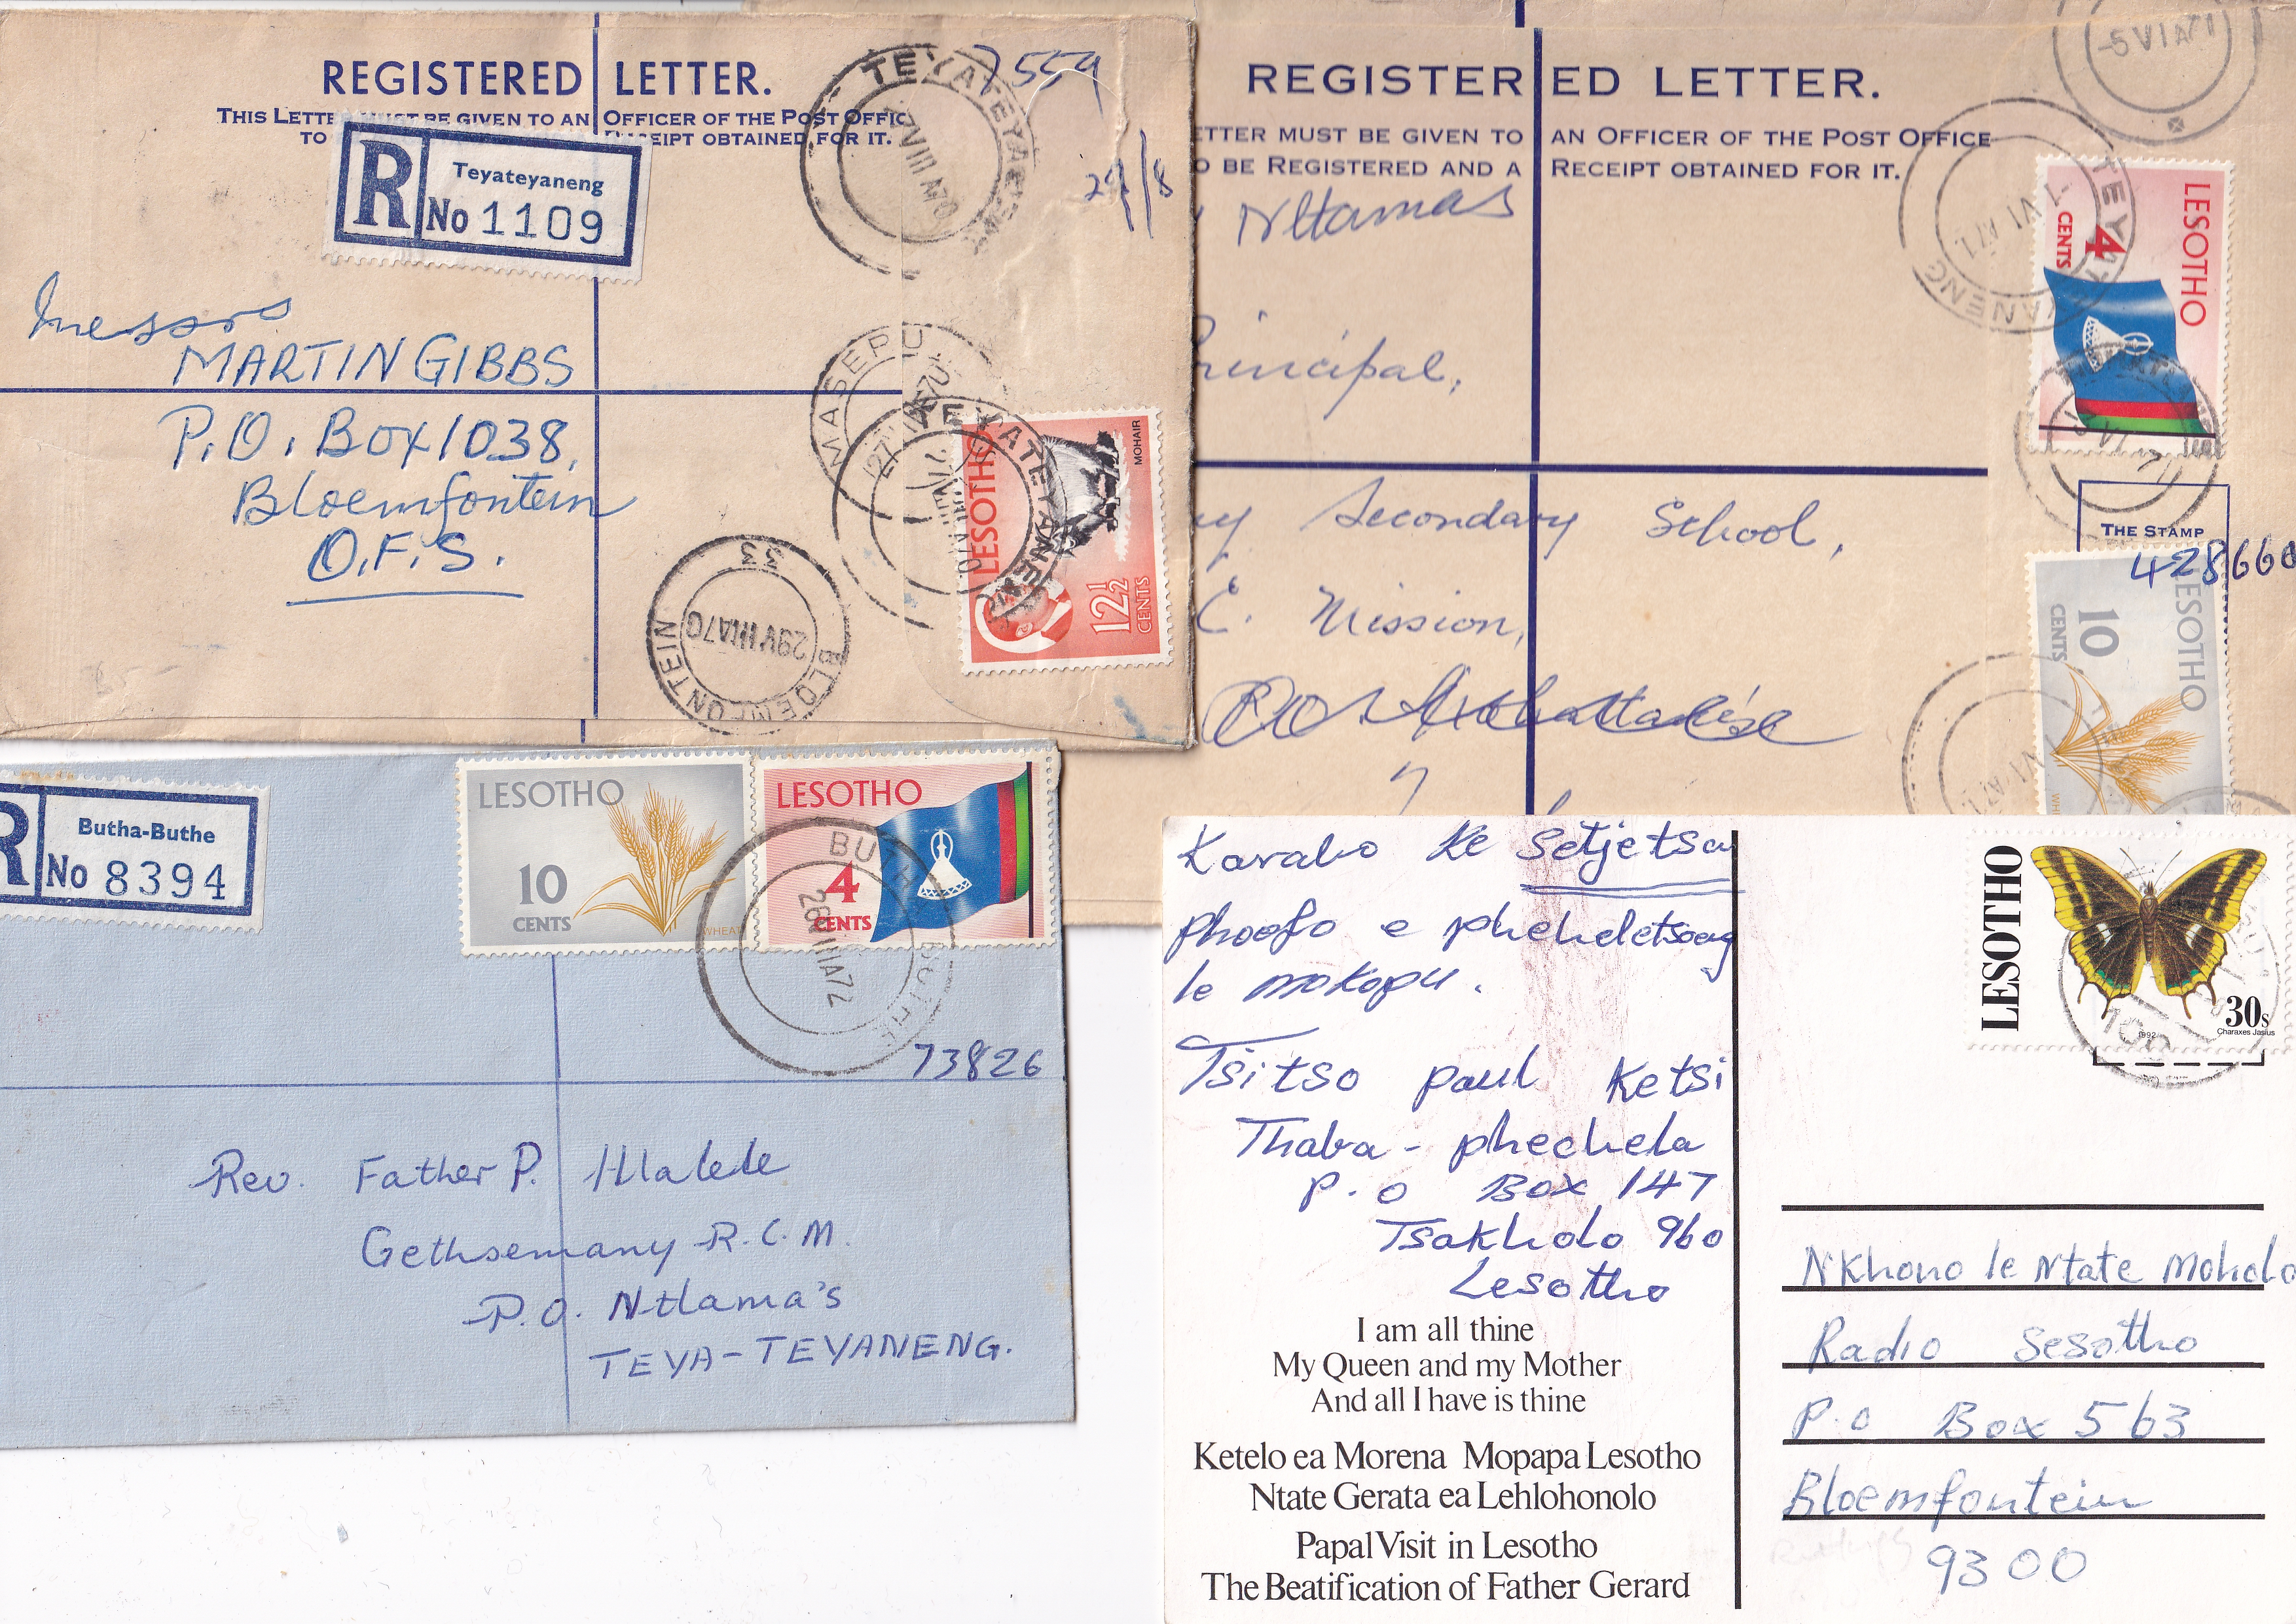 REGISTERED LETTER.
THIS LETTER MUST BE GIVEN TO AN OFFICER OF THE POST OFFIC
TO RECEIPT OBTAINED FOR IT.
R Teyateyaneng
No 1109
7559
29/8
TEYATEYANENG
Messrs
MARTIN GIBBS
P.O. Box 1038,
Bloemfontein
O.F.S.
MASERU
TEYATEYANENG
LESOTHO
MOHAIR
12½
CENTS
BLOEMFONTEIN
29 VIII A70
33
REGISTERED LETTER.
ETTER MUST BE GIVEN TO AN OFFICER OF THE POST OFFICE
O BE REGISTERED AND A RECEIPT OBTAINED FOR IT.
Ntlamas
Principal,
Secondary School,
C. Mission,
P.O.
-5 VI A71
TEYATEYANENG
-1 VI A71
LESOTHO
4
CENTS
THE STAMP
428660
LESOTHO
10
CENTS
R Butha-Buthe
No 8394
LESOTHO
10
CENTS
WHEAT
LESOTHO
4
CENTS
BUTHA BUTHE
73826
Rev. Father P. Hlalele
Gethsemany R.C.M.
P.O. Ntlama's
TEYA-TEYANENG.
Karabo ke Setjetsa
phoofo e pheheletsoeng
le mokopu.
Tsitso paul Ketsi
Thaba - phechela
P.O Box 147
Tsakholo 960
Lesotho
I am all thine
My Queen and my Mother
And all I have is thine
Ketelo ea Morena Mopapa Lesotho
Ntate Gerata ea Lehlohonolo
Papal Visit in Lesotho
The Beatification of Father Gerard
LESOTHO
30s
Charaxes Jasius
1992
100
Nkhono le Ntate Moholo
Radio Sesotho
P.O Box 563
Bloemfontein
9300